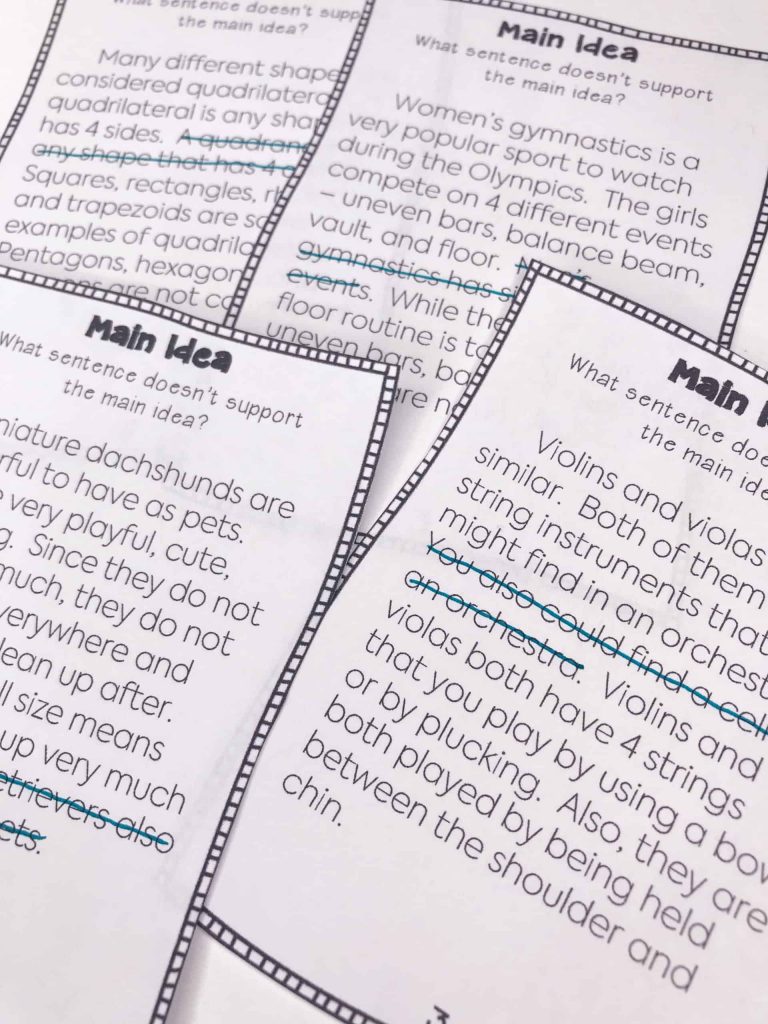 What sentence doesn't supp
the main idea?
Many different shape
considered quadrilatera
quadrilateral is any shap
has 4 sides. A quadran
any shape that has 4
Squares, rectangles, rh
and trapezoids are so
examples of quadrila
Pentagons, hexagon
are not co
Main Idea
What sentence doesn't support
the main idea?
Women's gymnastics is a
very popular sport to watch
during the Olympics. The girls
compete on 4 different events
– uneven bars, balance beam,
vault, and floor.
gymnastics has si
events. While the
floor routine is to
uneven bars, ba
are n
Main Idea
What sentence doesn't support
the main idea?
niature dachshunds are
rful to have as pets.
very playful, cute,
g. Since they do not
much, they do not
verywhere and
lean up after.
ll size means
up very much
etrievers also
ets.
Main I
What sentence doe
the main ide
Violins and violas
similar. Both of them
string instruments that
might find in an orchest
You also could find a cell
an orchestra. Violins and
violas both have 4 strings
that you play by using a bow
or by plucking. Also, they are
both played by being held
between the shoulder and
chin.
3